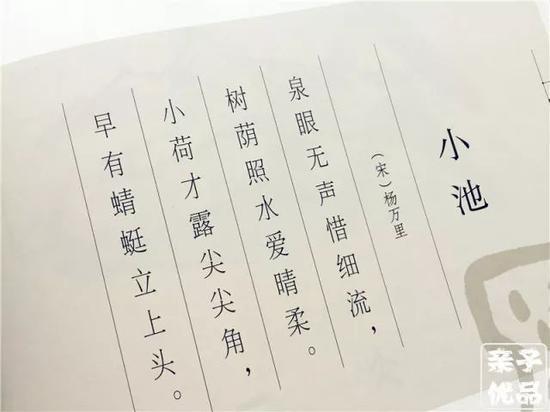 小池
（宋）杨万里
泉眼无声惜细流，
树荫照水爱晴柔。
小荷才露尖尖角，
早有蜻蜓立上头。
亲子
优品